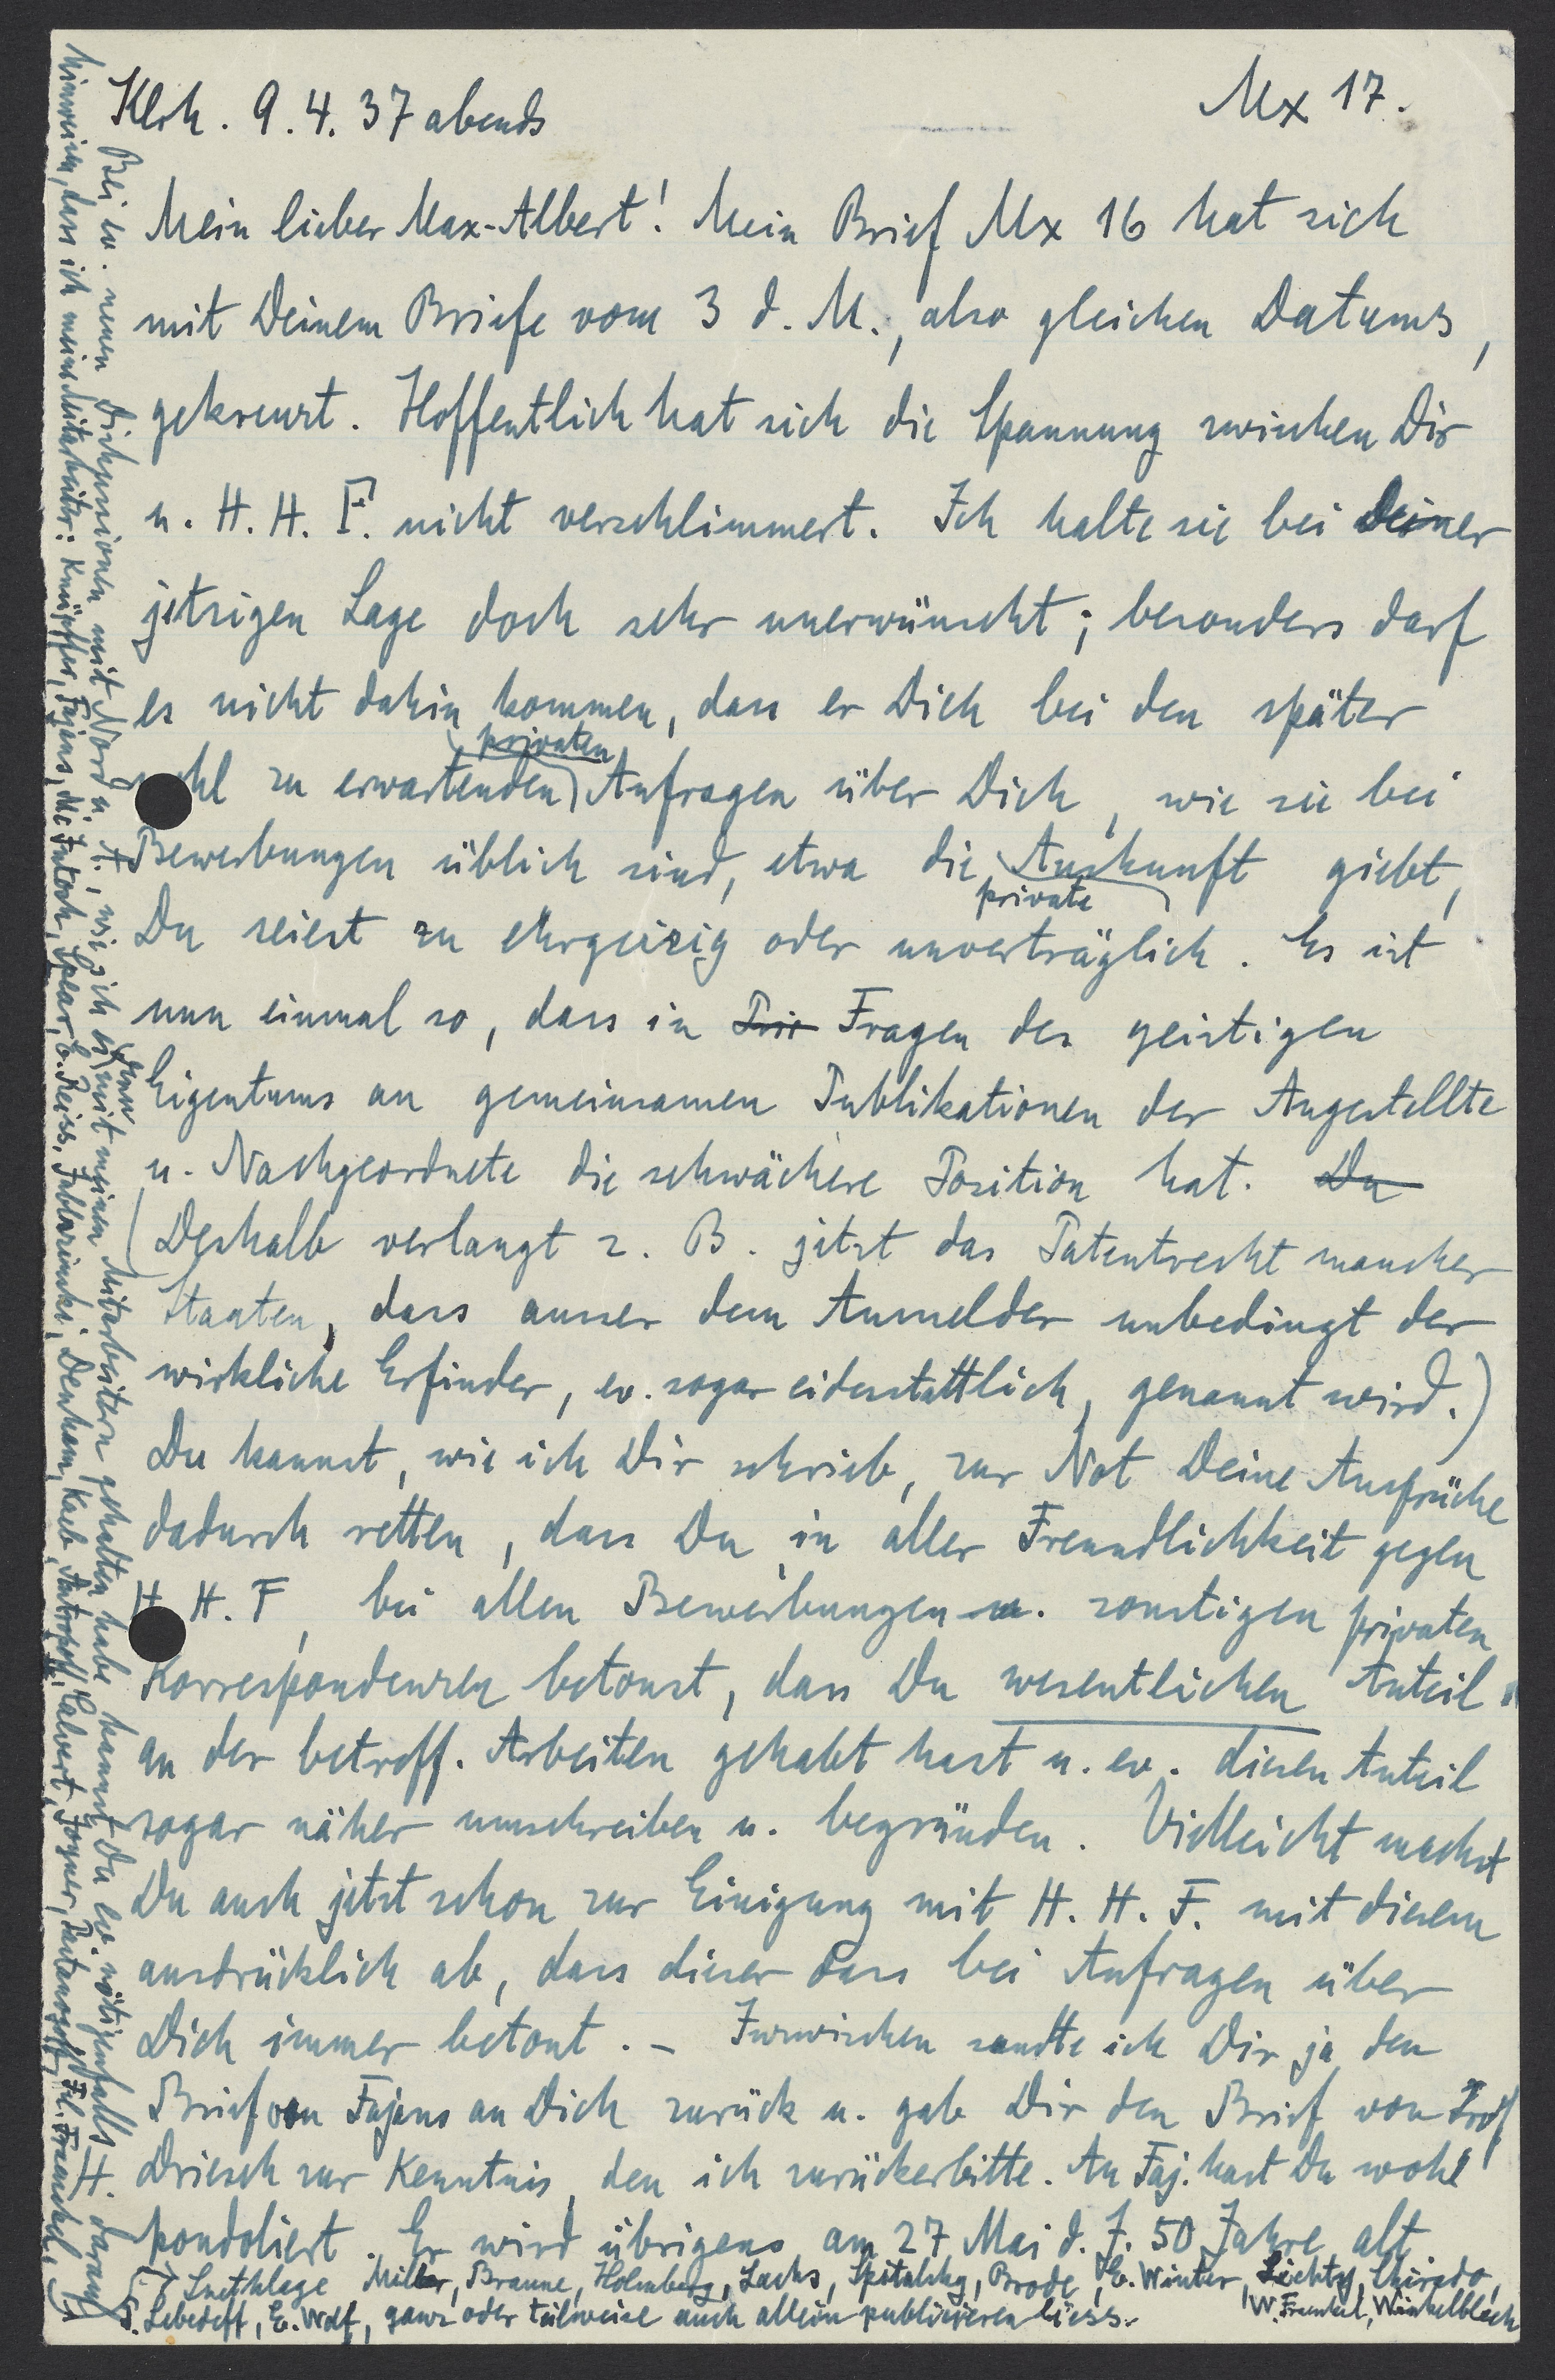 Klrh. 9.4.37 abends
Mx 17.
Mein lieber Max-Albert! Mein Brief Mx 16 hat sich
mit Deinem Briefe vom 3 d. M., also gleichen Datums,
gekreuzt. Hoffentlich hat sich die Spannung zwischen Dir
u. H. H. F. nicht verschlimmert. Ich halte sie bei Deiner
jetzigen Lage doch sehr unerwünscht; besonders darf
es nicht dahin kommen, dass er Dich bei den später
privaten
wohl zu erwartenden Anfragen über Dich, wie sie bei
Bewerbungen üblich sind, etwa die Auskunft giebt,
private
Du seiest zu ehrgeizig oder unverträglich. Es ist
nun einmal so, dass in Fragen des geistigen
Eigentums an gemeinsamen Publikationen der Angestellte
u. Nachgeordnete die schwächere Position hat. Du
(Deshalb verlangt z. B. jetzt das Patentrecht mancher
Staaten, dass ausser dem Anmelder unbedingt der
wirkliche Erfinder, ev. sogar eidesstattlich, genannt wird.)
Du kannst, wie ich Dir schrieb, zur Not Deine Ansprüche
dadurch retten, dass Du in aller Freundlichkeit gegen
H. H. F, bei allen Bewerbungen u. sonstigen privaten
Korrespondenzen betonst, dass Du wesentlichen Anteil
an der betreff. Arbeiten gehabt hast u. ev. diesen Anteil
sogar näher umschreiben u. begründen. Vielleicht machst
Du auch jetzt schon zur Einigung mit H. H. F. mit diesem
ausdrücklich ab, dass dieser dass bei Anfragen über
Dich immer betont. - Inzwischen sandte ich Dir ja den
Brief von Fajans an Dich zurück u. gab Dir den Brief von Prof
Driesch zur Kenntnis, den ich zurückerbitte. An Faj. hast Du wohl
kondoliert. Er wird übrigens am 27 Mai d. J. 50 Jahre alt
Bei ev. neuen Diskussionen mit Nord u. H., wie ich es mit meinen Mitarbeitern gehalten habe kannst Du ev. nötigenfalls H. darauf
hinweisen, dass ich meine Mitarbeiter: Knüpffer, Fajans, Mc Intosh, Spear, E. Reiss, Jablczinski, Denham, Kaeb, Antropoff, Calvert, Fl. Fraenkel,
Luethlage Miller, Braune, Holmberg, Sachs, Spitalsky, Brode, E. Winter, Lichty,
W. Fraenkel, Winkelblech
Lebedeff, E. Wolf, ganz oder teilweise auch allein publicieren liess.